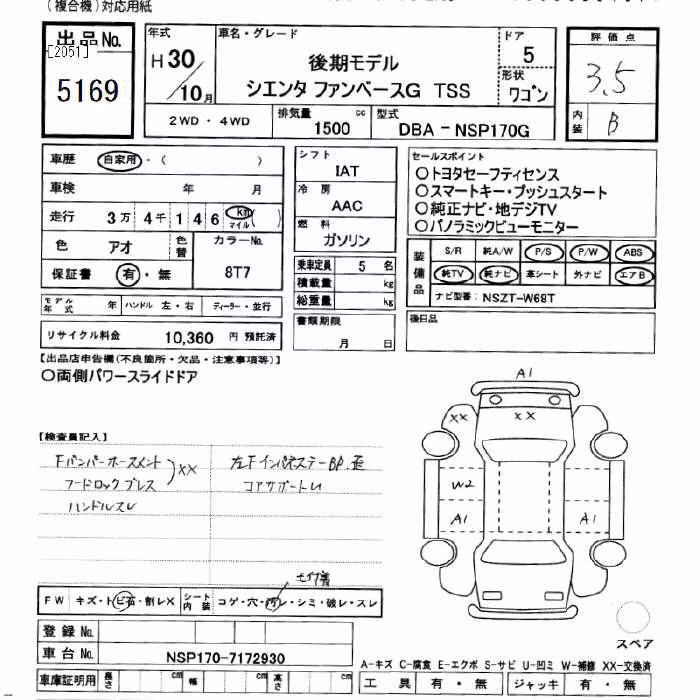 (複合機)対応用紙
出品No.
[2051]
5169
年式
H30/10月
車名・グレード
後期モデル
シエンタ ファンベースG TSS
ドア
5
形状
ワゴン
評価点
3.5
内装
B
2WD・4WD
排気量 cc
1500
型式
DBA-NSP170G
車歴 自家用・( )
車検 年 月
走行 3万4千146 km マイル( )
色 アオ 色替
カラーNo.
8T7
保証書 有・無
モデル年式 年 ハンドル 左・右 ディーラー・並行
リサイクル料金 10,360 円 預託済
シフト
IAT
冷房
AAC
燃料
ガソリン
乗車定員 5 名
積載量 kg
総重量 kg
書類期限
月 日
セールスポイント
○トヨタセーフティセンス
○スマートキー・プッシュスタート
○純正ナビ・地デジTV
○パノラミックビューモニター
装備品
S/R 純A/W P/S P/W ABS
純TV 純ナビ 革シート 外ナビ エアB
ナビ型番: NSZT-W68T
後日品
【出品店申告欄(不良箇所・欠品・注意事項等)】
○両側パワースライドドア
【検査員記入】
Fバンパーホースメント
フードロックブレス
XX
ハンドルスレ
左FインパネステーBP.歪
コアサポートU
A1
XX
XX
W2
A1
A1
FW キズ・トビ石・割レX シート内装 コゲ・穴・汚レ・シミ・破レ・スレ
登録No.
車台No. NSP170-7172930
車庫証明用 長さ cm 幅 cm 高さ cm
スペア
A-キズ C-腐食 E-エクボ S-サビ U-凹ミ W-補修 XX-交換済
工具 有・無 ジャッキ 有・無